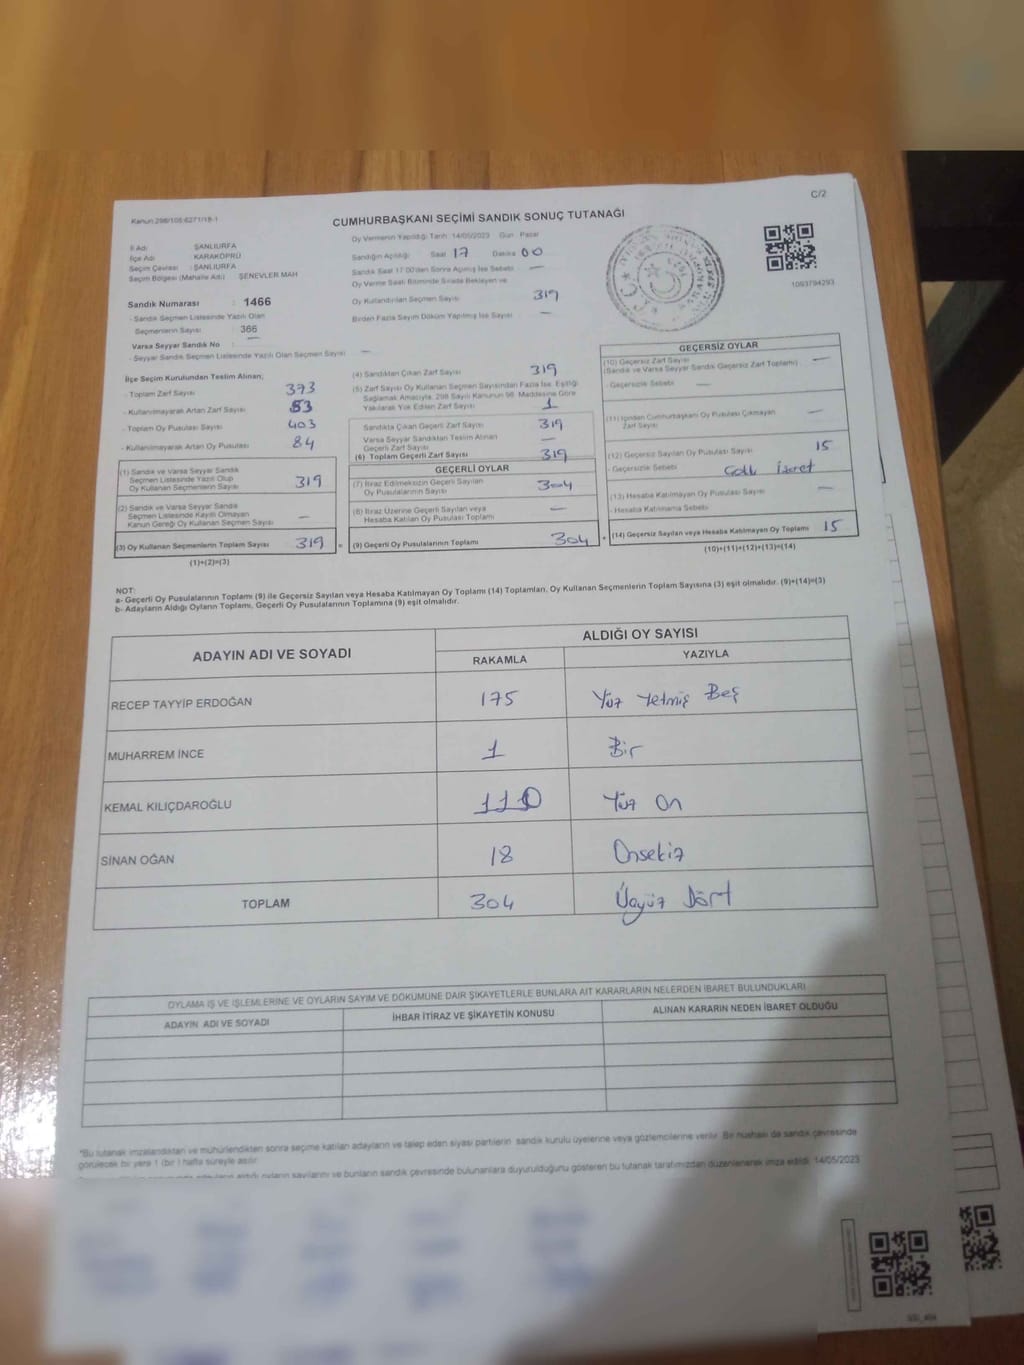 C/2
Kanun 298/105 6271/18-1
CUMHURBAŞKANI SEÇİMİ SANDIK SONUÇ TUTANAĞI
İl Adı ŞANLIURFA
İlçe Adı KARAKÖPRÜ
Seçim Çevresi : ŞANLIURFA
Seçim Bölgesi (Mahalle Adı) : ŞENEVLER MAH
Sandık Numarası : 1466
- Sandık Seçmen Listesinde Yazılı Olan
Seçmenlerin Sayısı : 366
Varsa Seyyar Sandık No : —
- Seyyar Sandık Seçmen Listesinde Yazılı Olan Seçmen Sayısı —
Oy Vermenin Yapıldığı Tarih : 14/05/2023 Gün : Pazar
Sandığın Açıldığı Saat 17 Dakika 00
Sandık Saat 17:00'den Sonra Açılmış İse Sebebi —
Oy Verme Saati Bitiminde Sırada Bekleyen ve
Oy Kullandırılan Seçmen Sayısı 319
Birden Fazla Sayım Döküm Yapılmış İse Sayısı —
1093794293
İlçe Seçim Kurulundan Teslim Alınan;
- Toplam Zarf Sayısı 373
- Kullanılmayarak Artan Zarf Sayısı 53
- Toplam Oy Pusulası Sayısı 403
- Kullanılmayarak Artan Oy Pusulası 84
(1) Sandık ve Varsa Seyyar Sandık
Seçmen Listesinde Yazılı Olup
Oy Kullanan Seçmenlerin Sayısı 319
(2) Sandık ve Varsa Seyyar Sandık
Seçmen Listesinde Kayıtlı Olmayan
Kanun Gereği Oy Kullanan Seçmen Sayısı —
(3) Oy Kullanan Seçmenlerin Toplam Sayısı 319 =
(1)+(2)=(3)
(4) Sandıktan Çıkan Zarf Sayısı 319
(5) Zarf Sayısı Oy Kullanan Seçmen Sayısından Fazla İse, Eşitliği
Sağlamak Amacıyla, 298 Sayılı Kanunun 98. Maddesine Göre
Yakılarak Yok Edilen Zarf Sayısı 1
Sandıkta Çıkan Geçerli Zarf Sayısı 319
Varsa Seyyar Sandıktan Teslim Alınan
Geçerli Zarf Sayısı —
(6) Toplam Geçerli Zarf Sayısı 319
GEÇERLİ OYLAR
(7) İtiraz Edilmeksizin Geçerli Sayılan
Oy Pusulalarının Sayısı 304
(8) İtiraz Üzerine Geçerli Sayılan veya
Hesaba Katılan Oy Pusulası Toplamı —
(9) Geçerli Oy Pusulalarının Toplamı 304 +
GEÇERSİZ OYLAR
(10) Geçersiz Zarf Sayısı —
(Sandık ve Varsa Seyyar Sandık Geçersiz Zarf Toplamı)
- Geçersizlik Sebebi —
(11) İçinden Cumhurbaşkanı Oy Pusulası Çıkmayan
Zarf Sayısı —
(12) Geçersiz Sayılan Oy Pusulası Sayısı 15
- Geçersizlik Sebebi İşaret
(13) Hesaba Katılmayan Oy Pusulası Sayısı —
- Hesaba Katılmama Sebebi
(14) Geçersiz Sayılan veya Hesaba Katılmayan Oy Toplamı 15
(10)+(11)+(12)+(13)=(14)
NOT:
a- Geçerli Oy Pusulalarının Toplamı (9) ile Geçersiz Sayılan veya Hesaba Katılmayan Oy Toplamı (14) Toplamları, Oy Kullanan Seçmenlerin Toplam Sayısına (3) eşit olmalıdır. (9)+(14)=(3)
b- Adayların Aldığı Oyların Toplamı, Geçerli Oy Pusulalarının Toplamına (9) eşit olmalıdır.
ADAYIN ADI VE SOYADI
ALDIĞI OY SAYISI
RAKAMLA YAZIYLA
RECEP TAYYİP ERDOĞAN 175 Yüz Yetmiş Beş
MUHARREM İNCE 1 Bir
KEMAL KILIÇDAROĞLU 110 Yüz On
SİNAN OĞAN 18 Onsekiz
TOPLAM 304 Üçyüz Dört
OYLAMA İŞ VE İŞLEMLERİNE VE OYLARIN SAYIM VE DÖKÜMÜNE DAİR ŞİKAYETLERLE BUNLARA AİT KARARLARIN NELERDEN İBARET BULUNDUKLARI
ADAYIN ADI VE SOYADI İHBAR İTİRAZ VE ŞİKAYETİN KONUSU ALINAN KARARIN NEDEN İBARET OLDUĞU
*Bu tutanak imzalandıktan ve mühürlendikten sonra seçime katılan adayların ve talep eden siyasi partilerin sandık kurulu üyelerine veya gözlemcilerine verilir. Bir nüshası da sandık çevresinde
görülecek bir yere 1 (bir ) hafta süreyle asılır.
aldığı oyların sayılarını ve bunların sandık çevresinde bulunanlara duyurulduğunu gösteren bu tutanak tarafımızdan düzenlenerek imza edildi. 14/05/2023